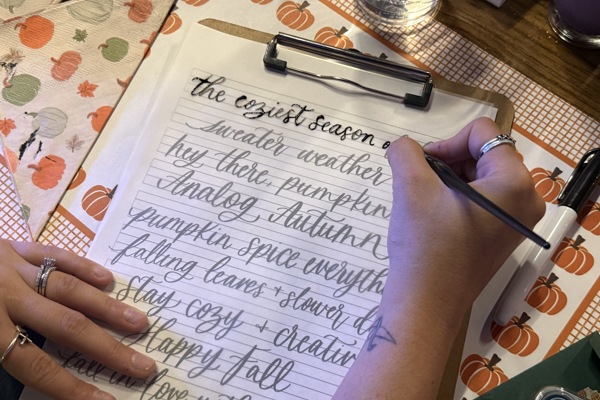 the coziest season o
sweater weather
hey there, pumpkin
Analog Autumn
pumpkin spice everyth
falling leaves + slower d
stay cozy + creativ
Happy Fall
fall in love